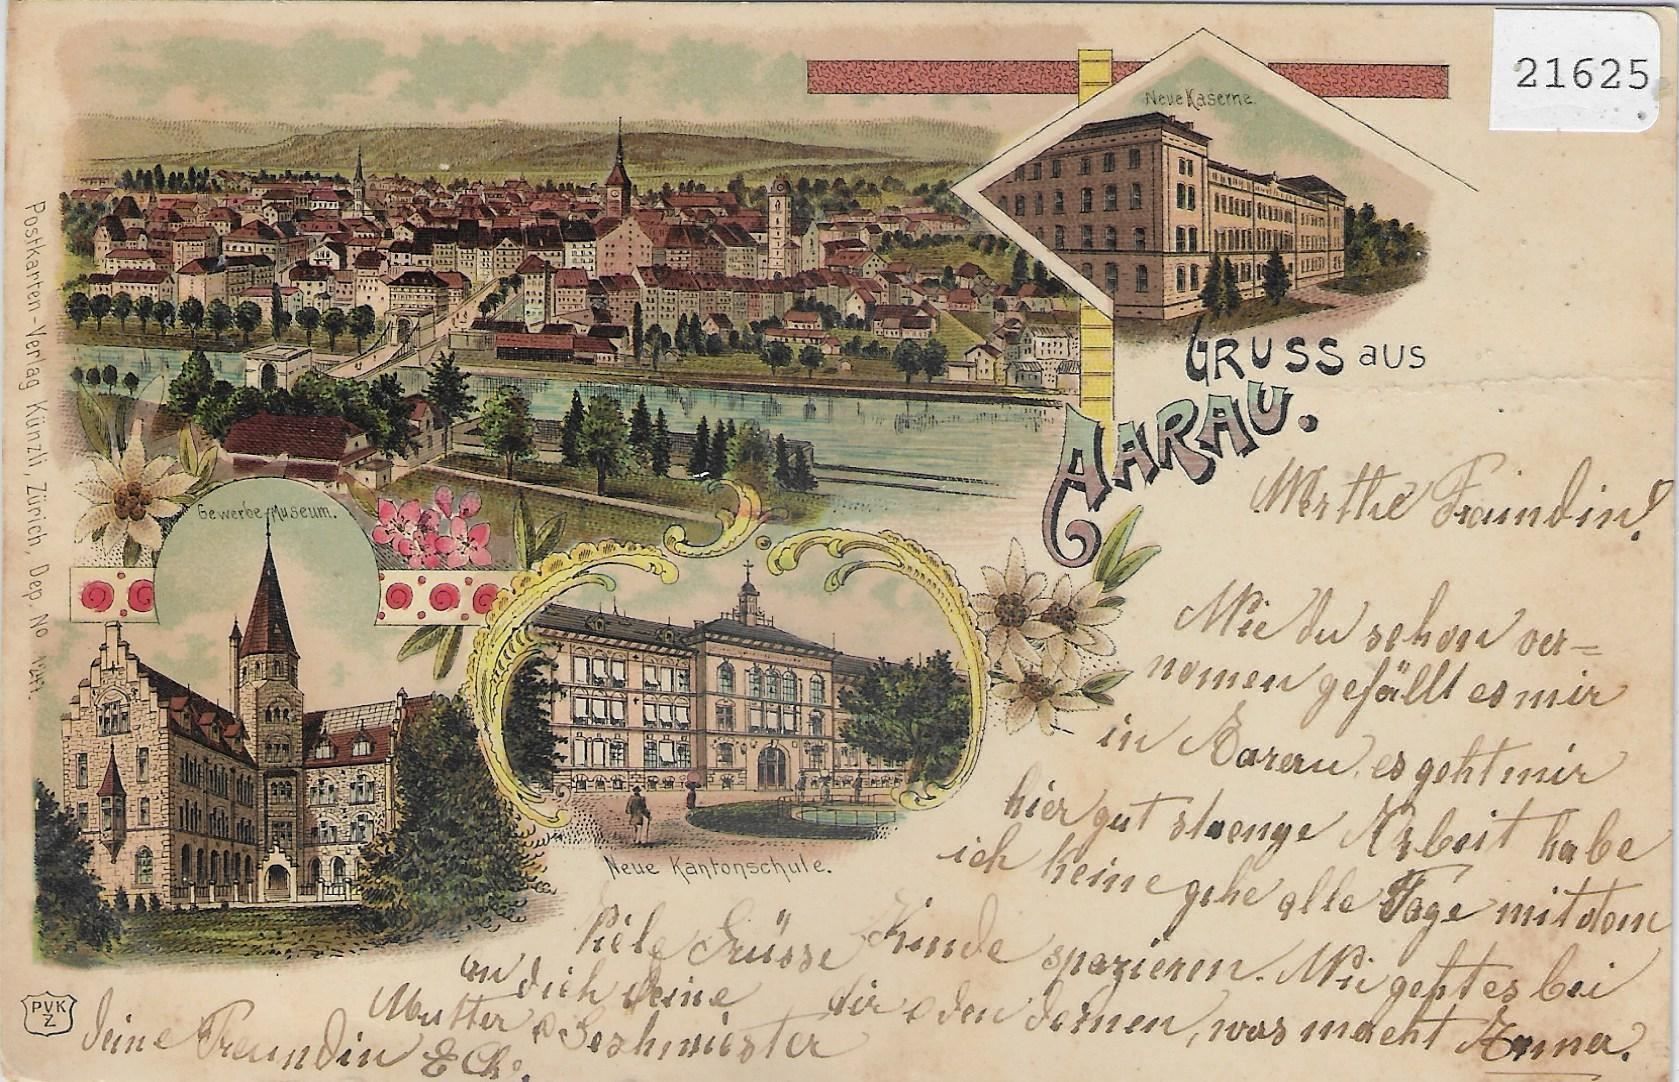 21625
Neue Kaserne.
GRUSS aus
AARAU.
Gewerbe-Museum.
Neue Kantonschule.
Postkarten-Verlag Künzli, Zürich, Dep. No
PVK
Z
Werthe Freindin!
Wie du schon ver-
nomen gefällt es mir
in Aarau, es geht mir
hier gut strenge Arbeit habe
ich keine gehe alle Tage mit dem
Kinde spazieren. Wie geht es bei
dir & den deinen, was macht Anna.
Viele Grüsse
an dich deine
Mutter & Geschwister
deine Freundin